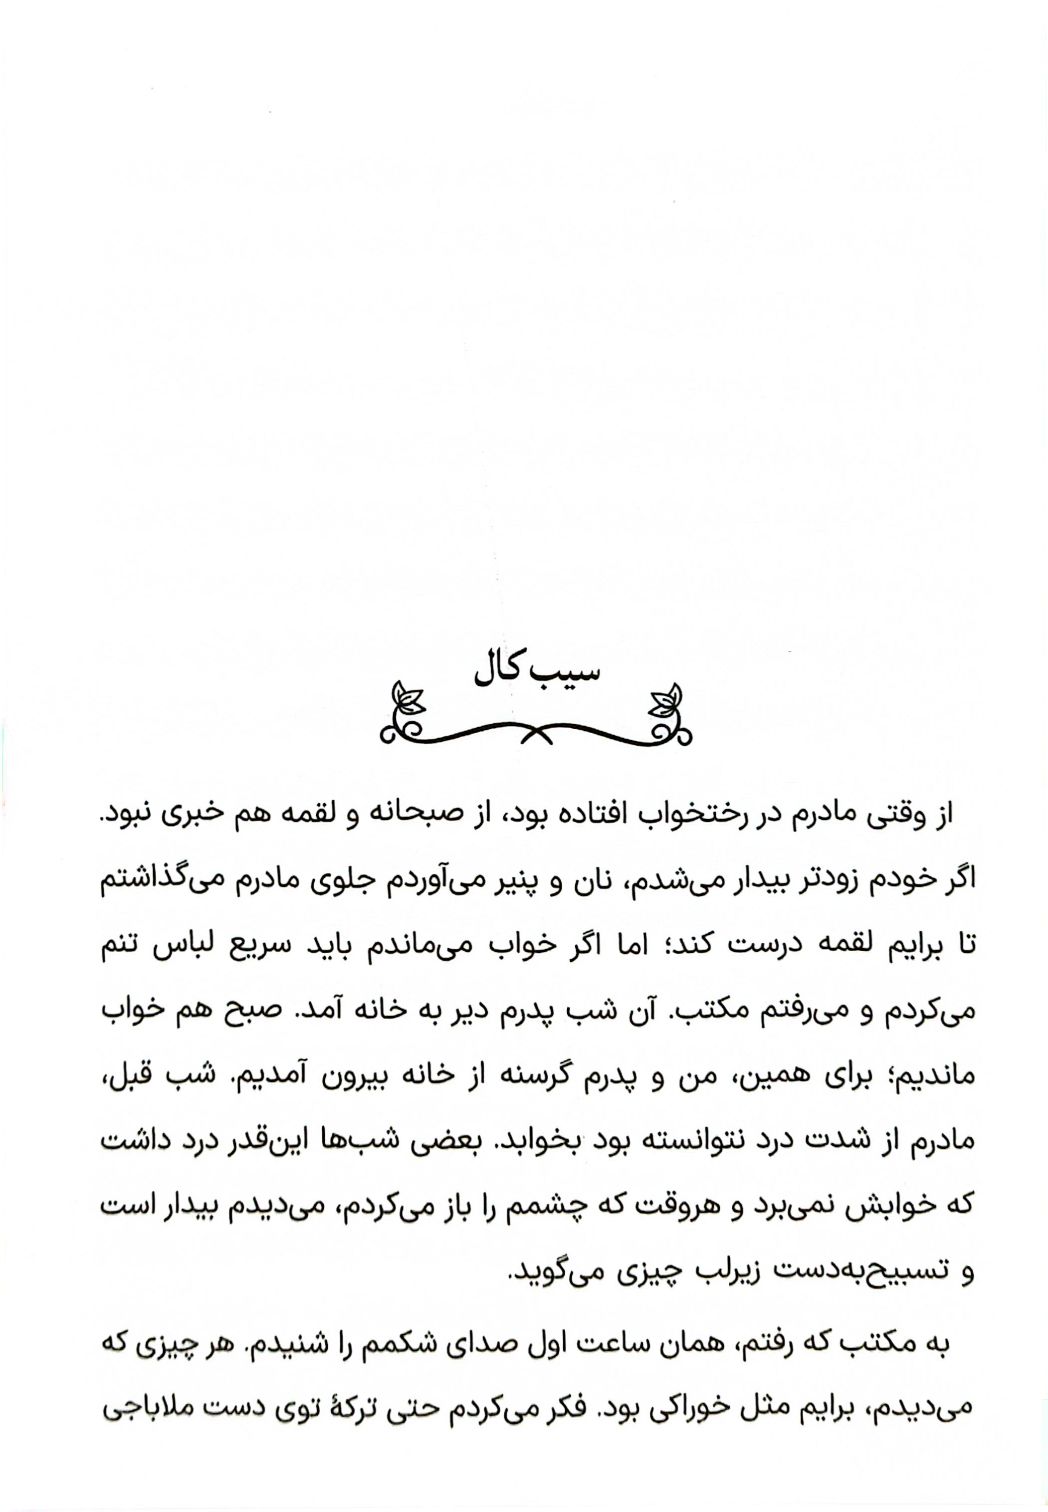 سیب کال
از وقتی مادرم در رختخواب افتاده بود، از صبحانه و لقمه هم خبری نبود.
اگر خودم زودتر بیدار می‌شدم، نان و پنیر می‌آوردم جلوی مادرم می‌گذاشتم
تا برایم لقمه درست کند؛ اما اگر خواب می‌ماندم باید سریع لباس تنم
می‌کردم و می‌رفتم مکتب. آن شب پدرم دیر به خانه آمد. صبح هم خواب
ماندیم؛ برای همین، من و پدرم گرسنه از خانه بیرون آمدیم. شب قبل،
مادرم از شدت درد نتوانسته بود بخوابد. بعضی شب‌ها این‌قدر درد داشت
که خوابش نمی‌برد و هروقت که چشمم را باز می‌کردم، می‌دیدم بیدار است
و تسبیح‌به‌دست زیرلب چیزی می‌گوید.
به مکتب که رفتم، همان ساعت اول صدای شکمم را شنیدم. هر چیزی که
می‌دیدم، برایم مثل خوراکی بود. فکر می‌کردم حتی ترکهٔ توی دست ملاباجی